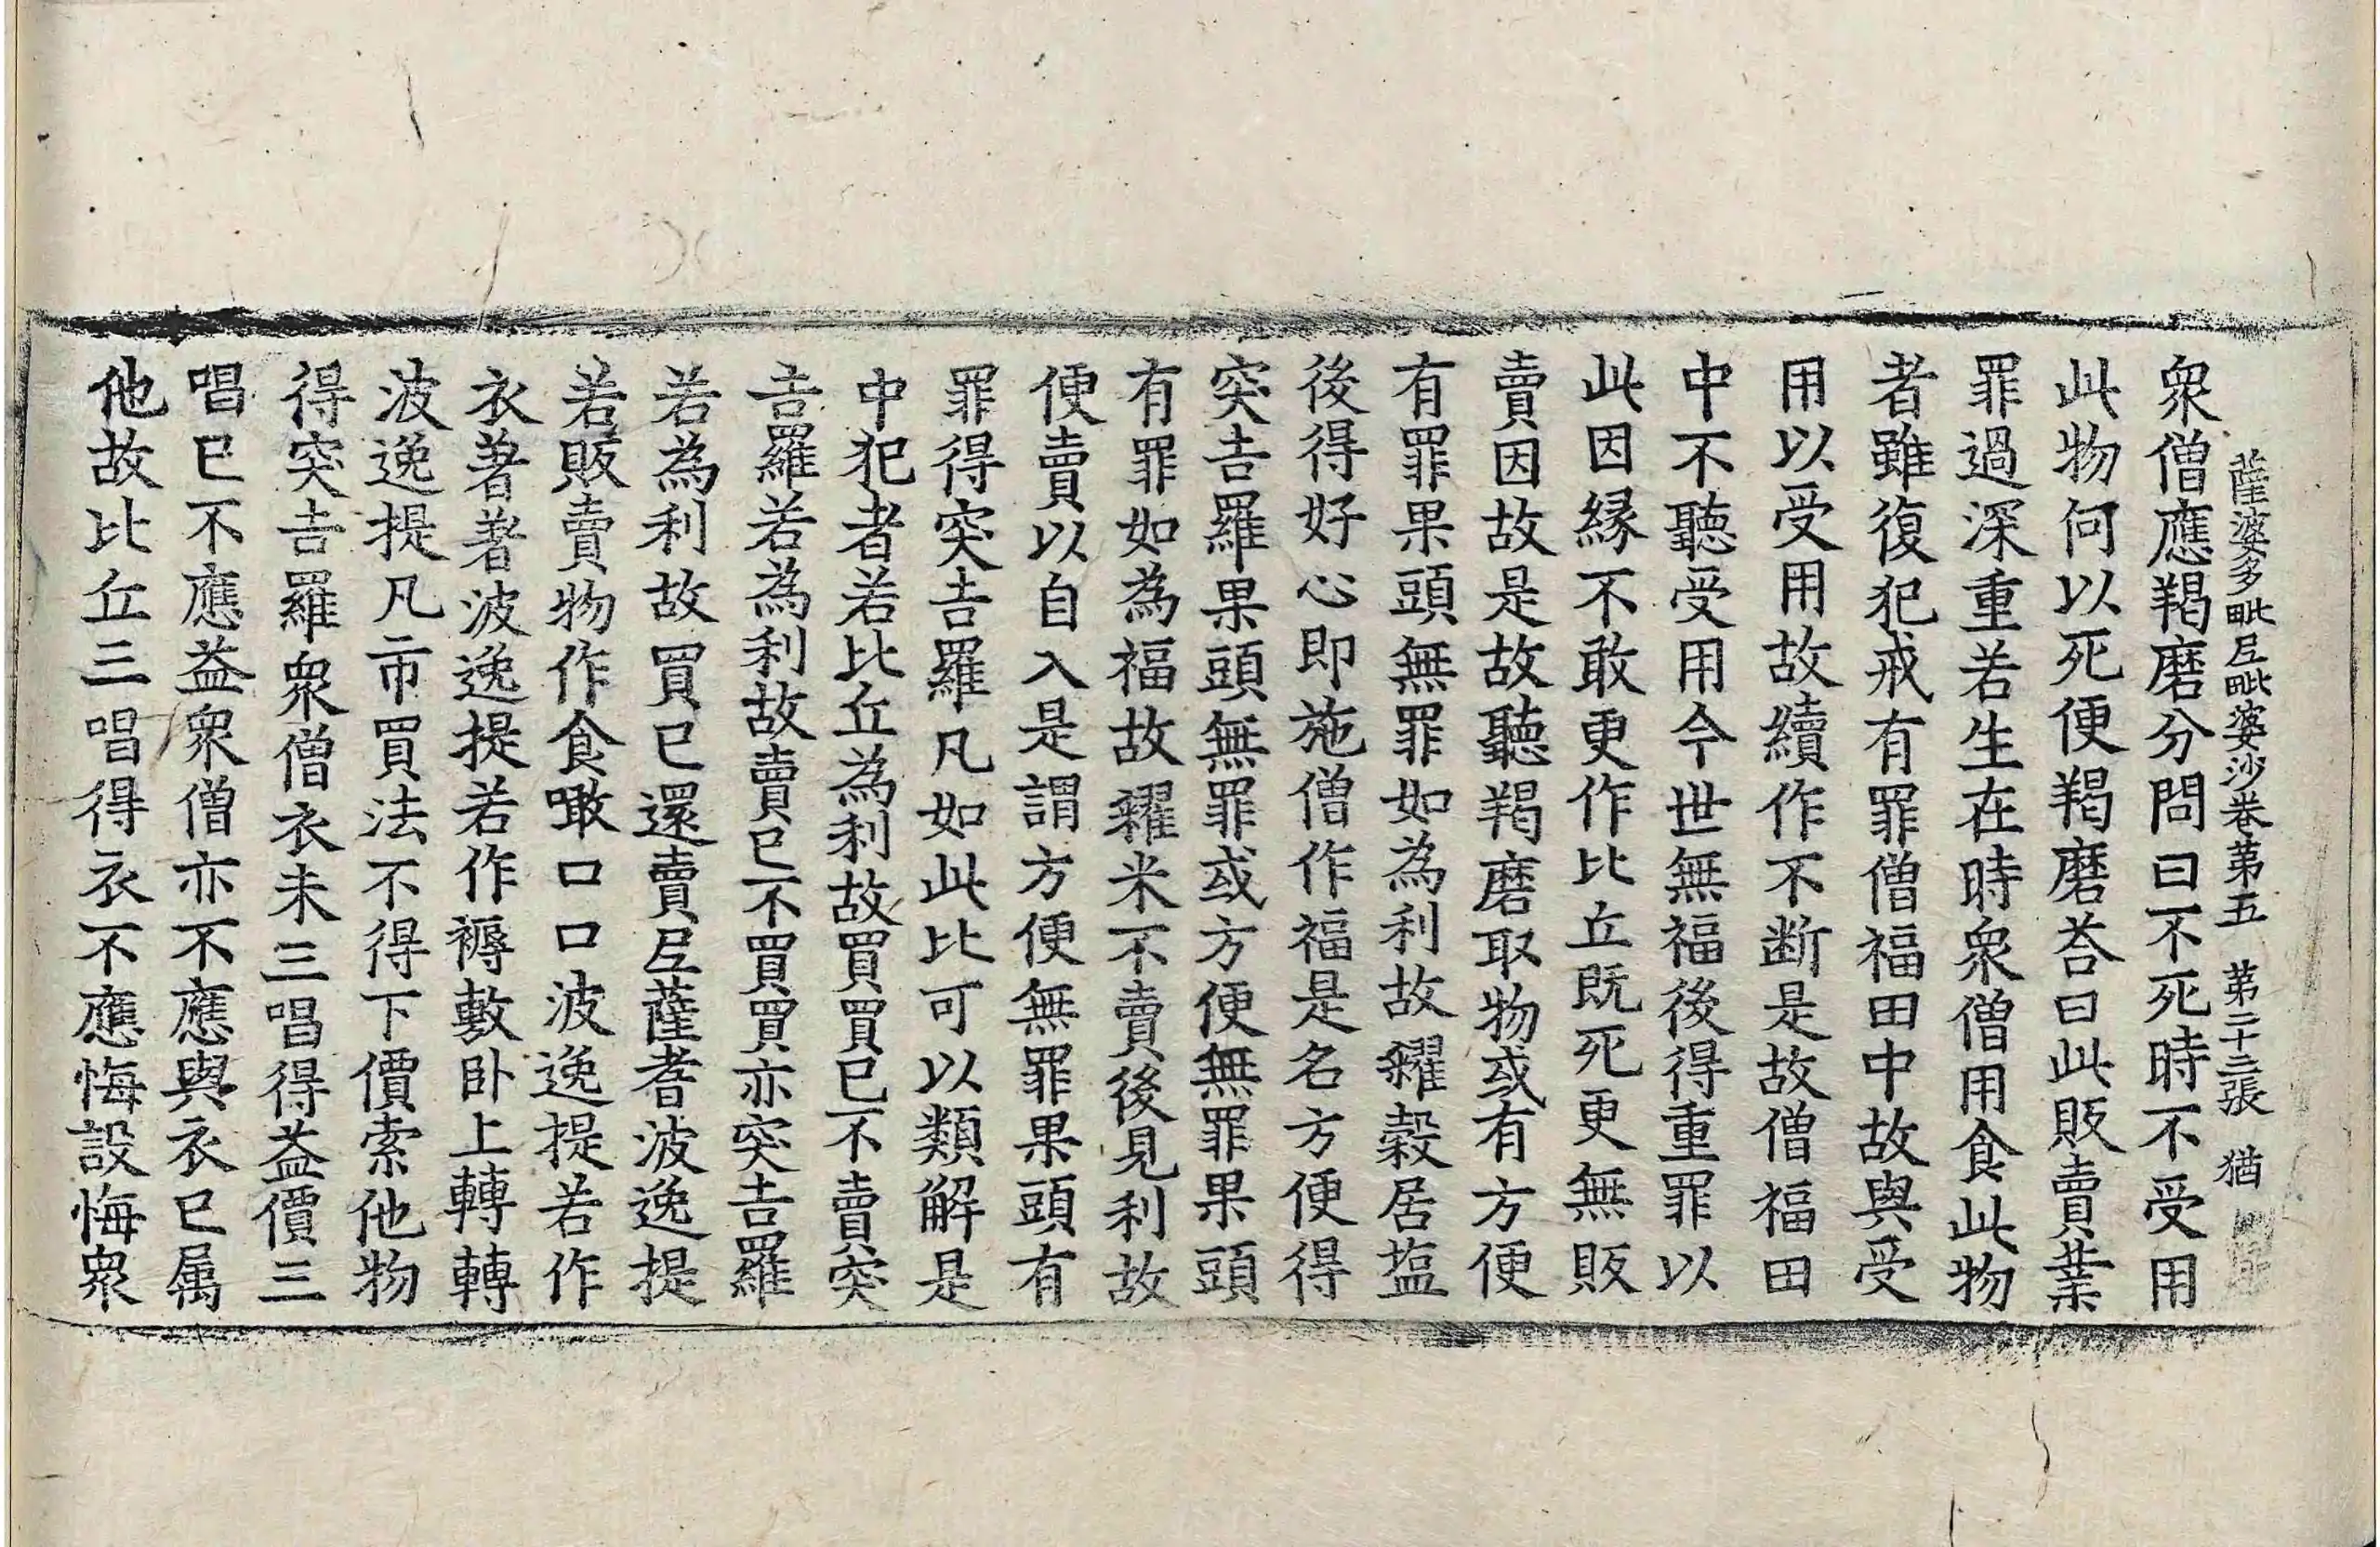 薩婆多毗尼毗婆沙卷第五 第二十三張 猶
衆僧應羯磨分問曰不死時不受用
此物何以死便羯磨荅曰此販賣業
罪過深重若生在時衆僧用食此物
者雖復犯戒有罪僧福田中故與受
用以受用故續作不断是故僧福田
中不聽受用今世無福後得重罪以
此因縁不敢更作比丘既死更無販
賣因故是故聽羯磨取物或有方便
有罪果頭無罪如為利故糴穀居塩
後得好心即施僧作福是名方便得
突吉羅果頭無罪或方便無罪果頭
有罪如為福故糴米不賣後見利故
便賣以自入是謂方便無罪果頭有
罪得突吉羅凡如此比可以類解是
中犯者若比丘為利故買買已不賣突
吉羅若為利故賣已不買買亦突吉羅
若為利故買已還賣尼薩耆波逸提
若販賣物作食噉口口波逸提若作
衣著著波逸提若作褥敷卧上轉轉
波逸提凡市買法不得下價索他物
得突吉羅衆僧衣未三唱得益價三
唱已不應益衆僧亦不應與衣已属
他故比丘三唱得衣不應悔設悔衆